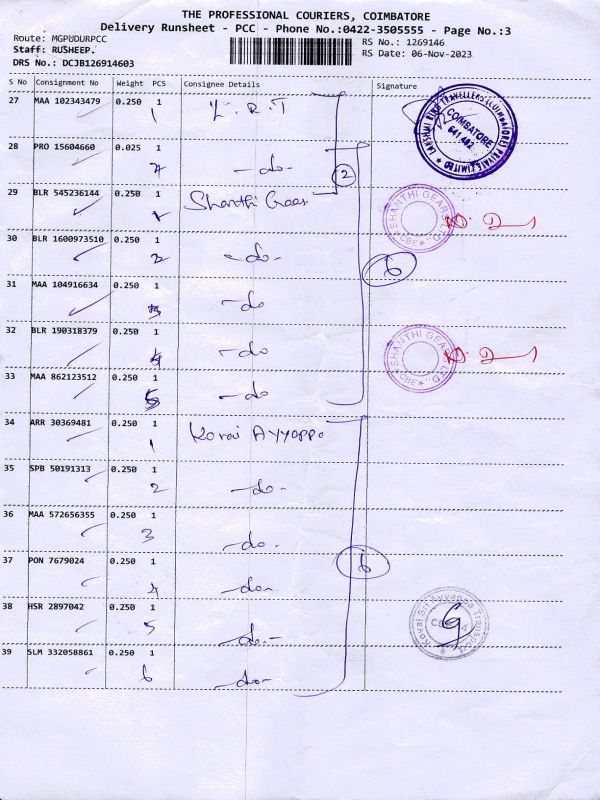 THE PROFESSIONAL COURIERS, COIMBATORE
Delivery Runsheet - PCC - Phone No.:0422-3505555 - Page No.:3
Route: MGPUDURPCC
RS No.: 1269146
Staff: RUSHEEP.
RS Date: 06-Nov-2023
DRS No.: DC3B126914603
S No Consignment No Weight PCS Consignee Details Signature
27 MAA 102343479 0.250 1 L.R.T
1
28 PRO 15604660 0.025 1 -do-
2
29 BLR 545236144 0.250 1 Shanthi Gear
1
30 BLR 1600973510 0.250 1 -do-
2
31 MAA 104916634 0.250 1 -do
3
32 BLR 190318379 0.250 1 -do
4
33 MAA 862123512 0.250 1 -do
5
34 ARR 30369481 0.250 1 Korai Ayyappa
1
35 SPB 50191313 0.250 1 -do-
2
36 MAA 572656355 0.250 1 -do.
3
37 PON 7679024 0.250 1 -do-
4
38 HSR 2897042 0.250 1 -do-
5
39 SLM 332058861 0.250 1 -do-
6
2
6
6
LAKSHMI RING TRAVELLERS (COIMBATORE) PRIVATE LIMITED
COIMBATORE
641 402
SHANTHI GEARS LTD.
CBE
SHANTHI GEARS LTD.
CBE
Korai Sri Ayyappa Transport